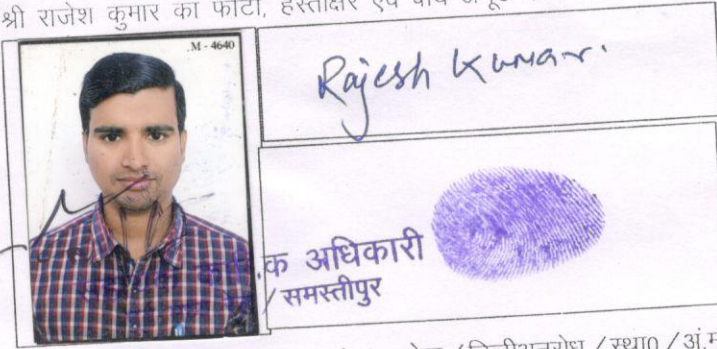 श्री राजेश कुमार का फोटो, हस्ताक्षर एवं
.M - 4640
Rajesh Kumar.
क अधिकारी
/ समस्तीपुर
/ स्था० / अं.म